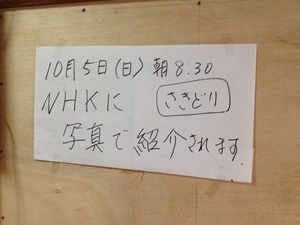 10月5日(日) 朝8:30
NHKに さきどり
写真で紹介されます.